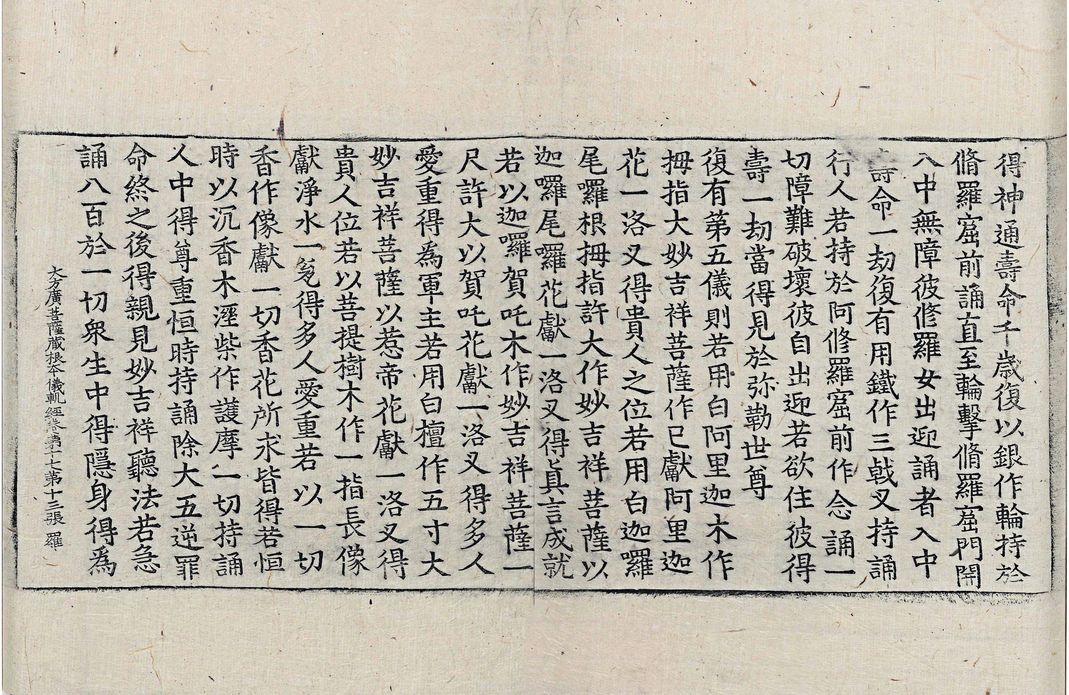 得神通壽命千歲復以銀作輪持於
脩羅窟前誦直至輪擊脩羅窟門開
八中無障彼修羅女出迎誦者入中
壽命一劫復有用鐵作三戟叉持誦
行人若持於阿修羅窟前作念誦一
切障難破壞彼自出迎若欲住彼得
壽一劫當得見於弥勒世尊
復有第五儀則若用白阿里迦木作
拇指大妙吉祥菩薩作已獻阿里迦
花一洛叉得貴人之位若用白迦囉
尾囉根拇指許大作妙吉祥菩薩以
迦囉尾囉花獻一洛叉得真言成就
若以迦囉賀吒木作妙吉祥菩薩一
尺許大以賀吒花獻一洛叉得多人
愛重得為軍主若用白檀作五寸大
妙吉祥菩薩以惹帝花獻一洛叉得
貴人位若以菩提樹木作一指長像
獻淨水一㲉得多人愛重若以一切
香作像獻一切香花所求皆得若恒
時以沉香木溼柴作護摩一切持誦
人中得尊重恒時持誦除大五逆罪
命終之後得親見妙吉祥聽法若急
誦八百於一切衆生中得隱身得為
大方廣菩薩藏根本儀軌經卷第十七第十三張 羅